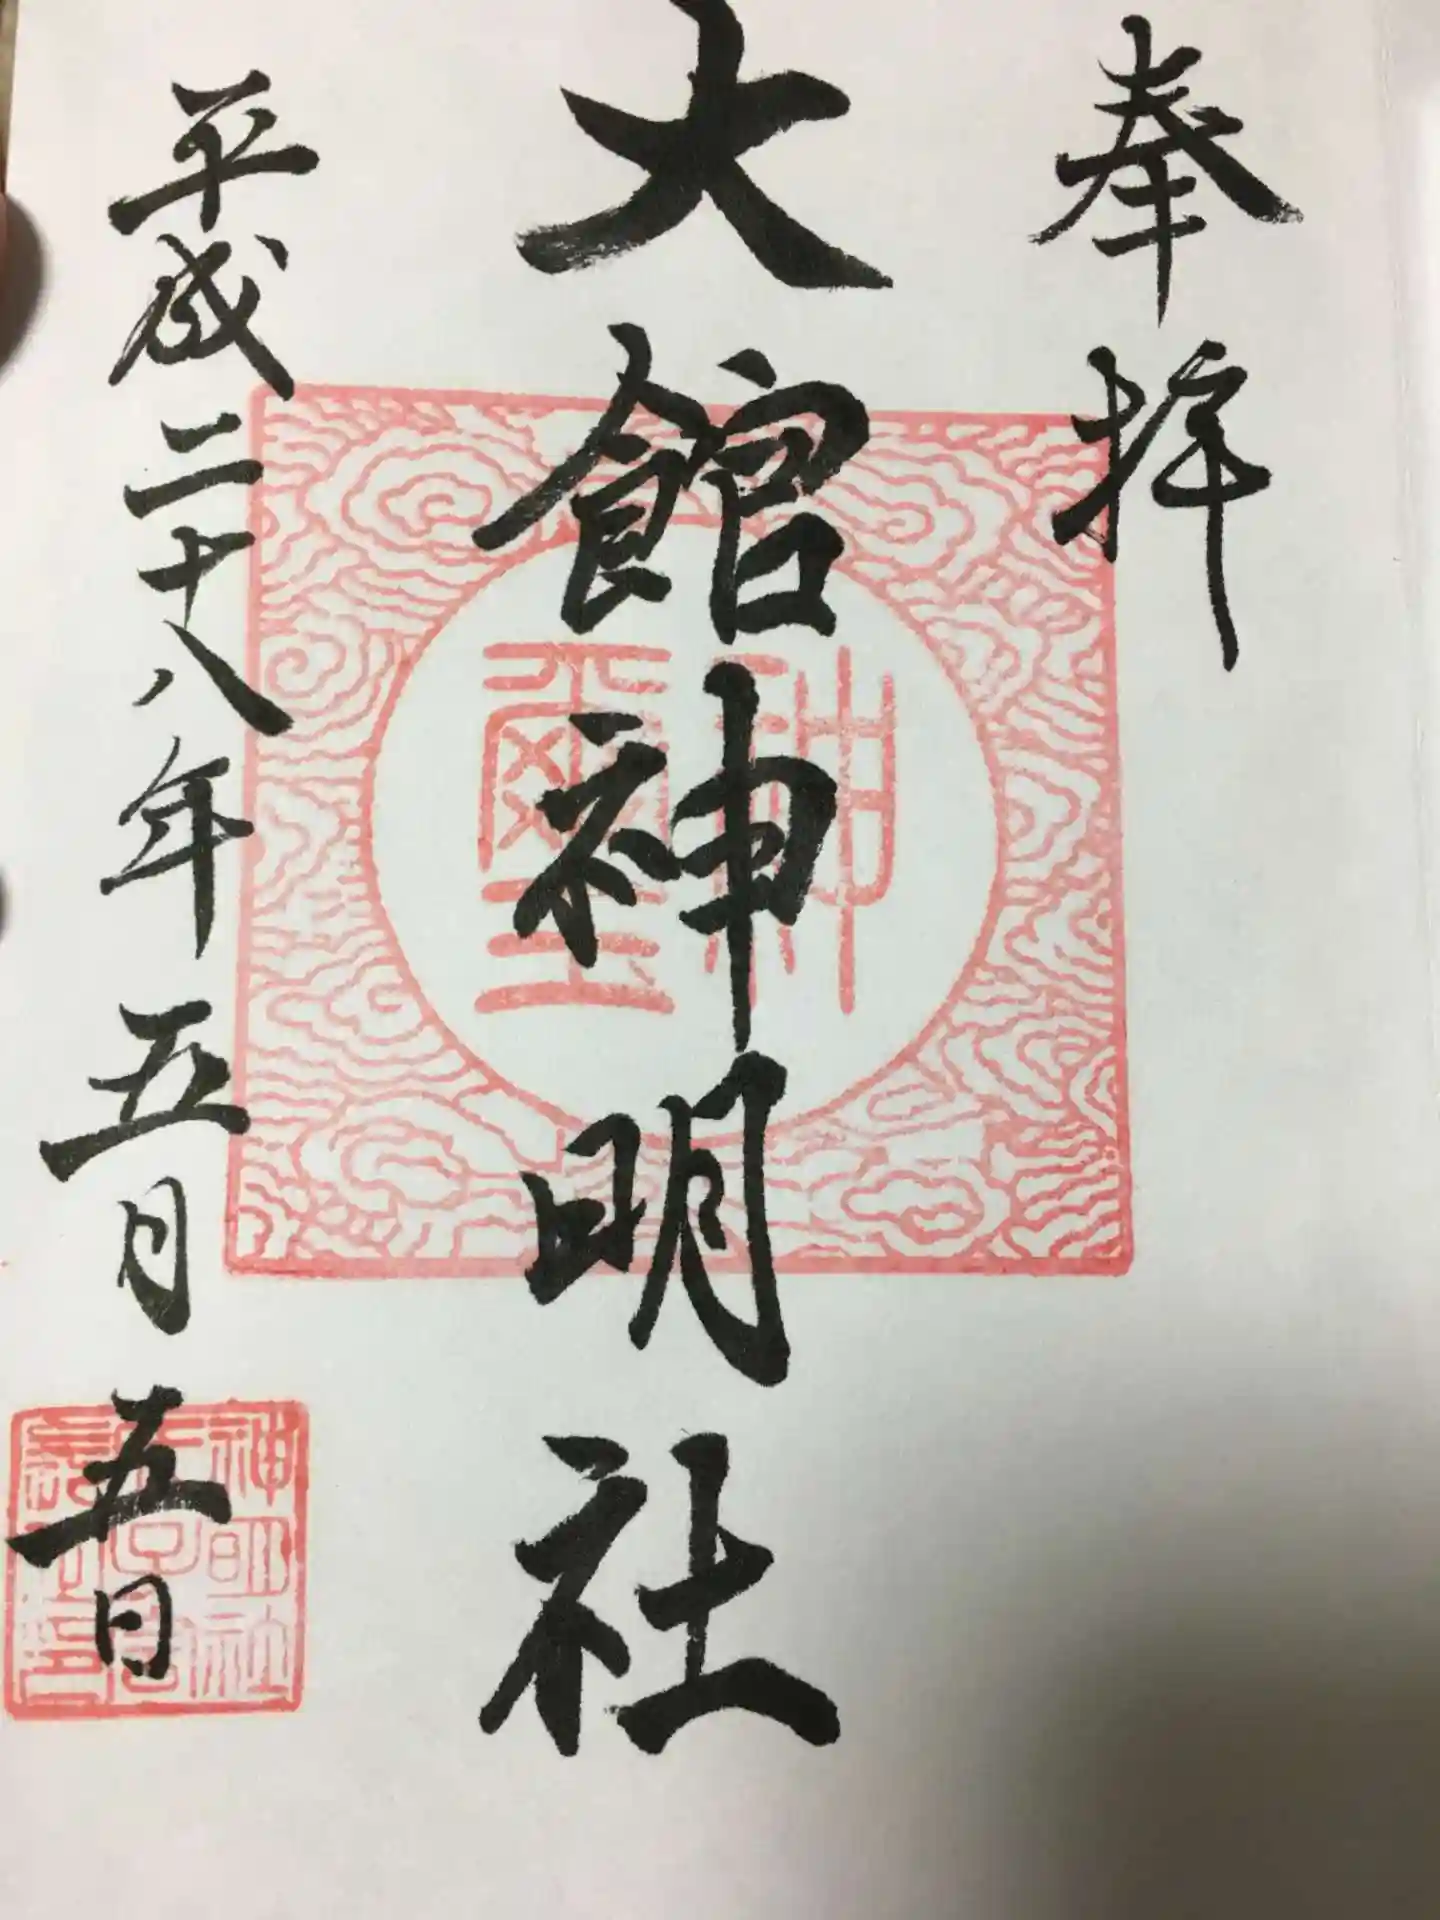 奉拝
大館神明社
神璽
平成二十八年五月五日